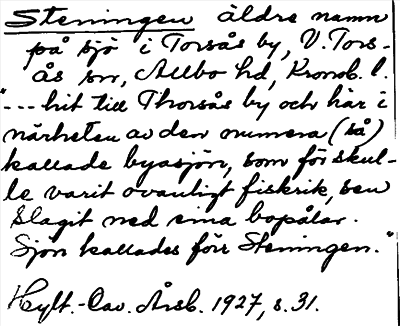 Steningen äldre namn
på sjö i Torsås by, V. Tors-
ås sn, Allbo hd, Kronob. l.
"--- hit till Thorsås by och här i
närheten av den numera (så)
kallade byasjön, som för skul-
le varit ovanligt fiskrik, sen
slagit ned sina bopålar.
Sjön kallades förr Steningen."
Hylt.-Cav. Årsb. 1927, s. 31.